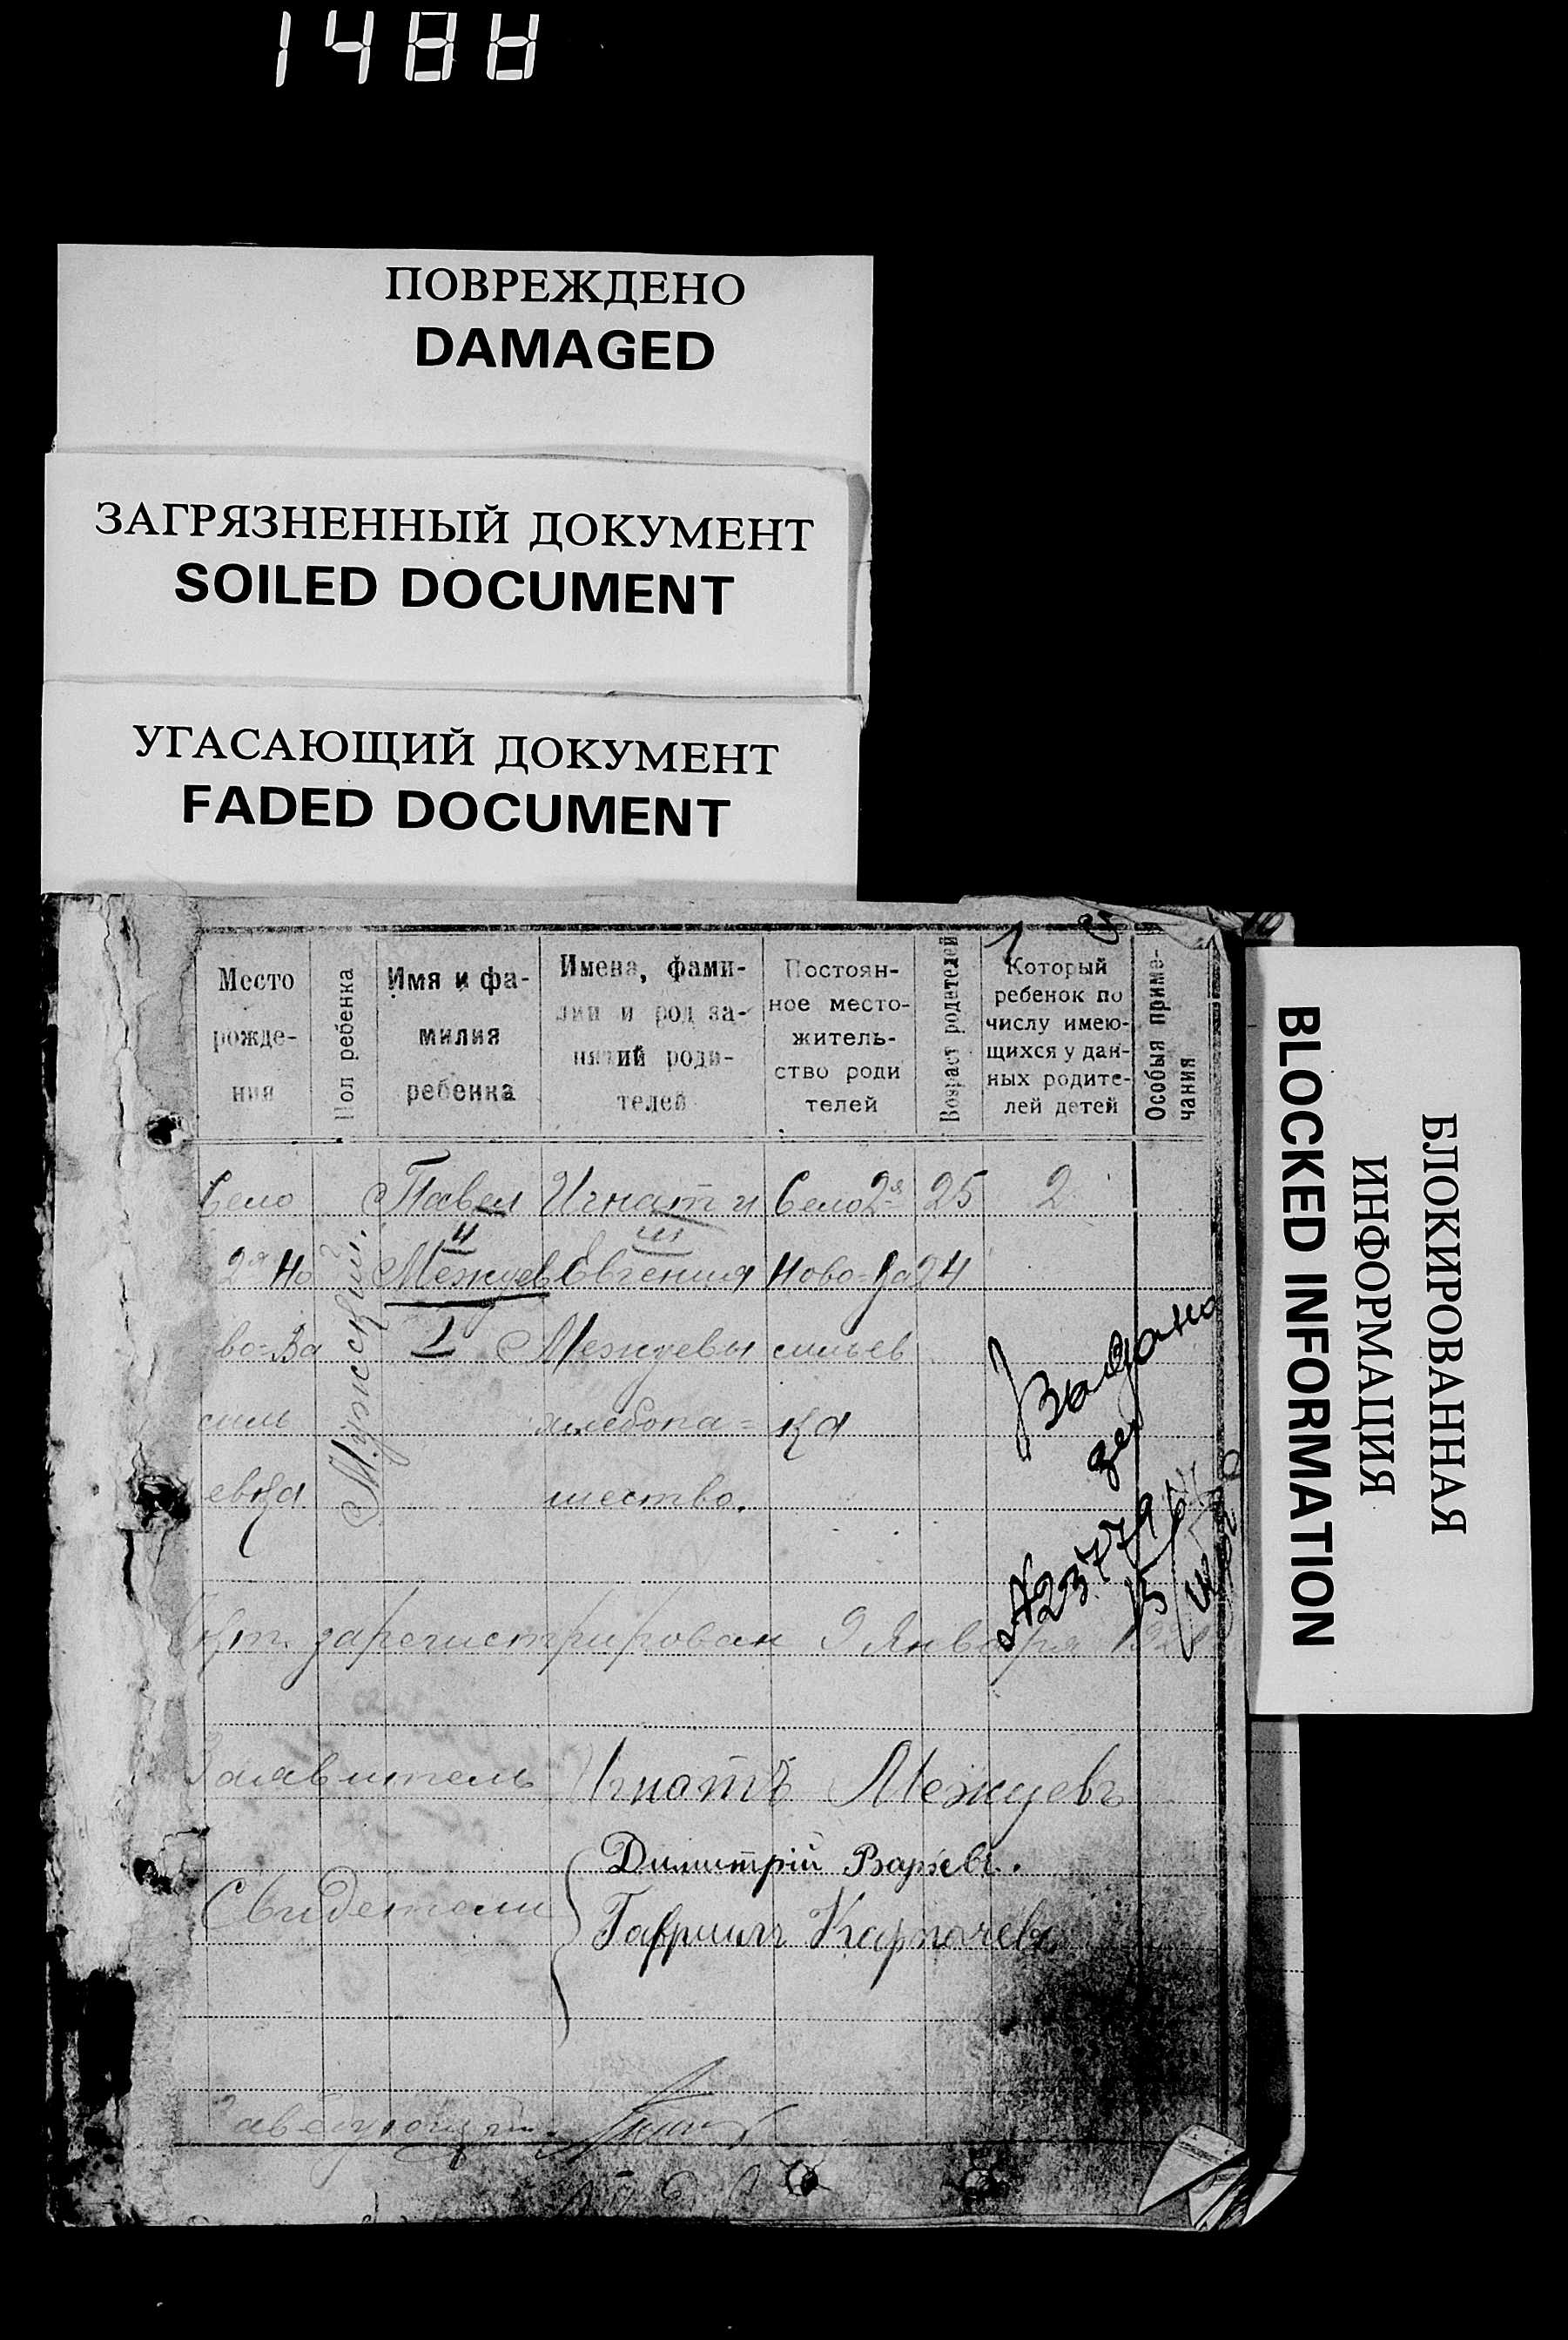 1488
ПОВРЕЖДЕНО
DAMAGED
ЗАГРЯЗНЕННЫЙ ДОКУМЕНТ
SOILED DOCUMENT
УГАСАЮЩИЙ ДОКУМЕНТ
FADED DOCUMENT
БЛОКИРОВАННАЯ
ИНФОРМАЦИЯ
BLOCKED INFORMATION
Место
рожде-
ния
Пол ребенка
Имя и фа-
милия
ребенка
Имена, фами-
лии и род за-
нятий роди-
телей
Постоян-
ное место-
житель-
ство роди
телей
Возраст родителей
Который
ребенок по
числу имею-
щихся у дан-
ных родите-
лей детей
Особыя приме-
чания
Село
2я Но
во=Ва
силь
евка
Мужской.
Павел
II
Межуев
I
Игнат и
III
Евгения
Межуевы
хлебопа=
шество.
Село 2я
Ново=Ва
сильев
ка
25
24
2
Выдано
А23779
Акт. зарегистрирован 9 Января
Заявитель Игнатъ Межуевъ
Свидетели
Димитрій
Гавриилъ Карпачевъ
Заведующий